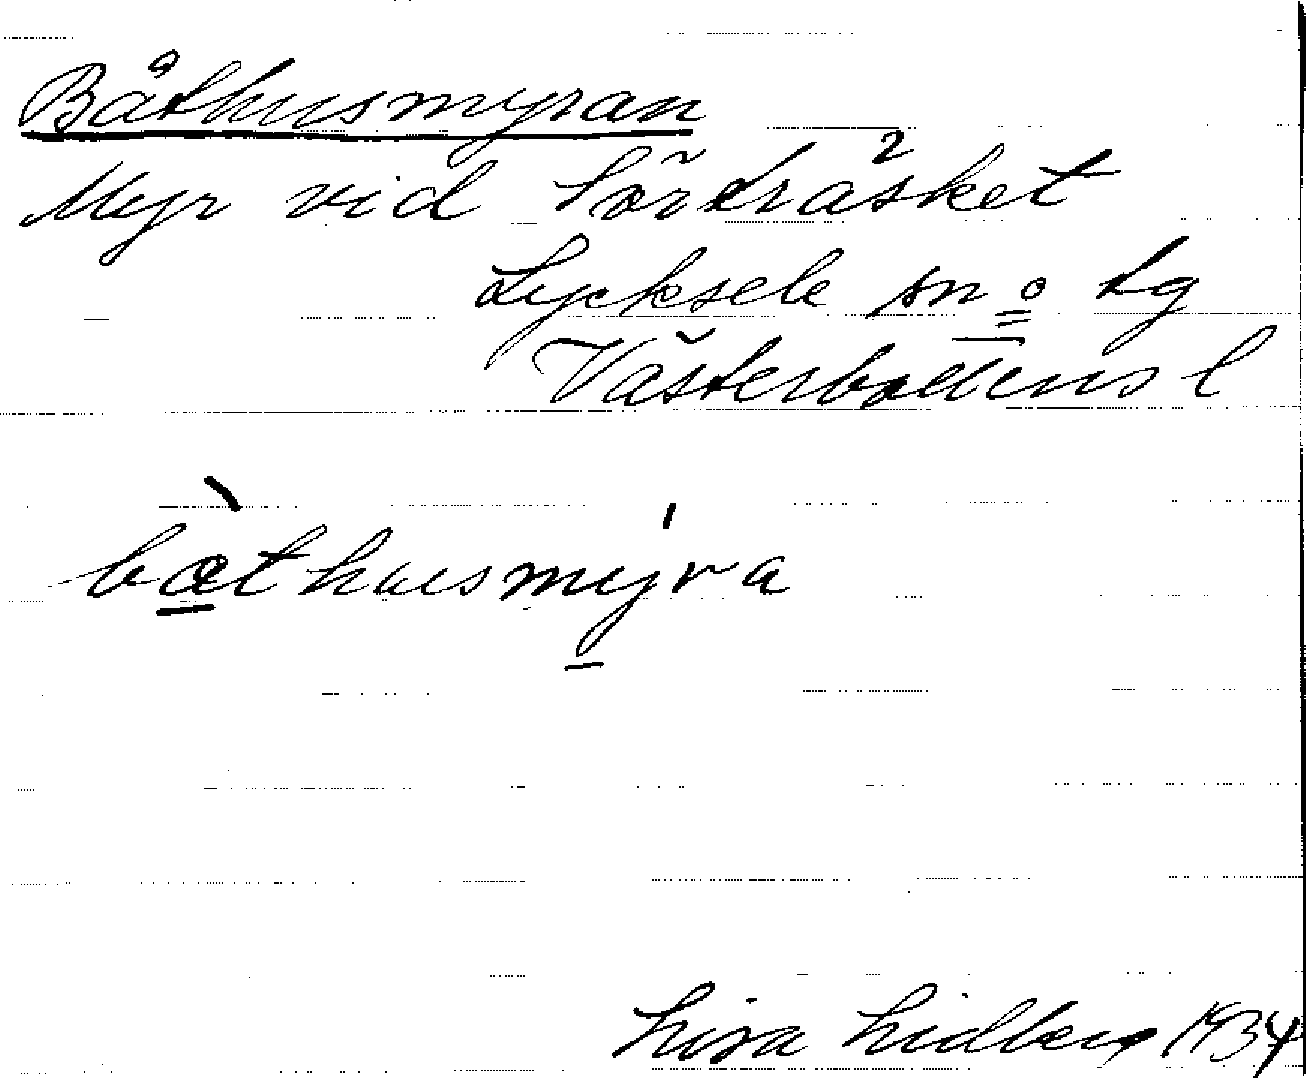 Båthusmyran
Myr vid Sörträsket
Lycksele sn o lg
Västerbottens l
bæthusmyra
Lisa Lidberg 1934